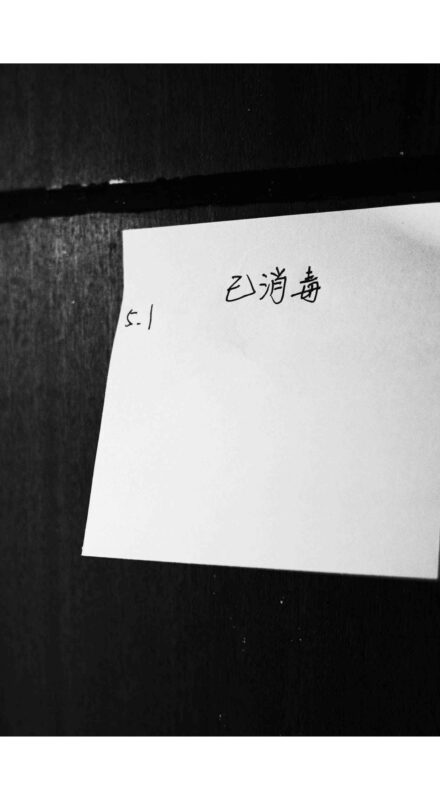 已消毒
5.1